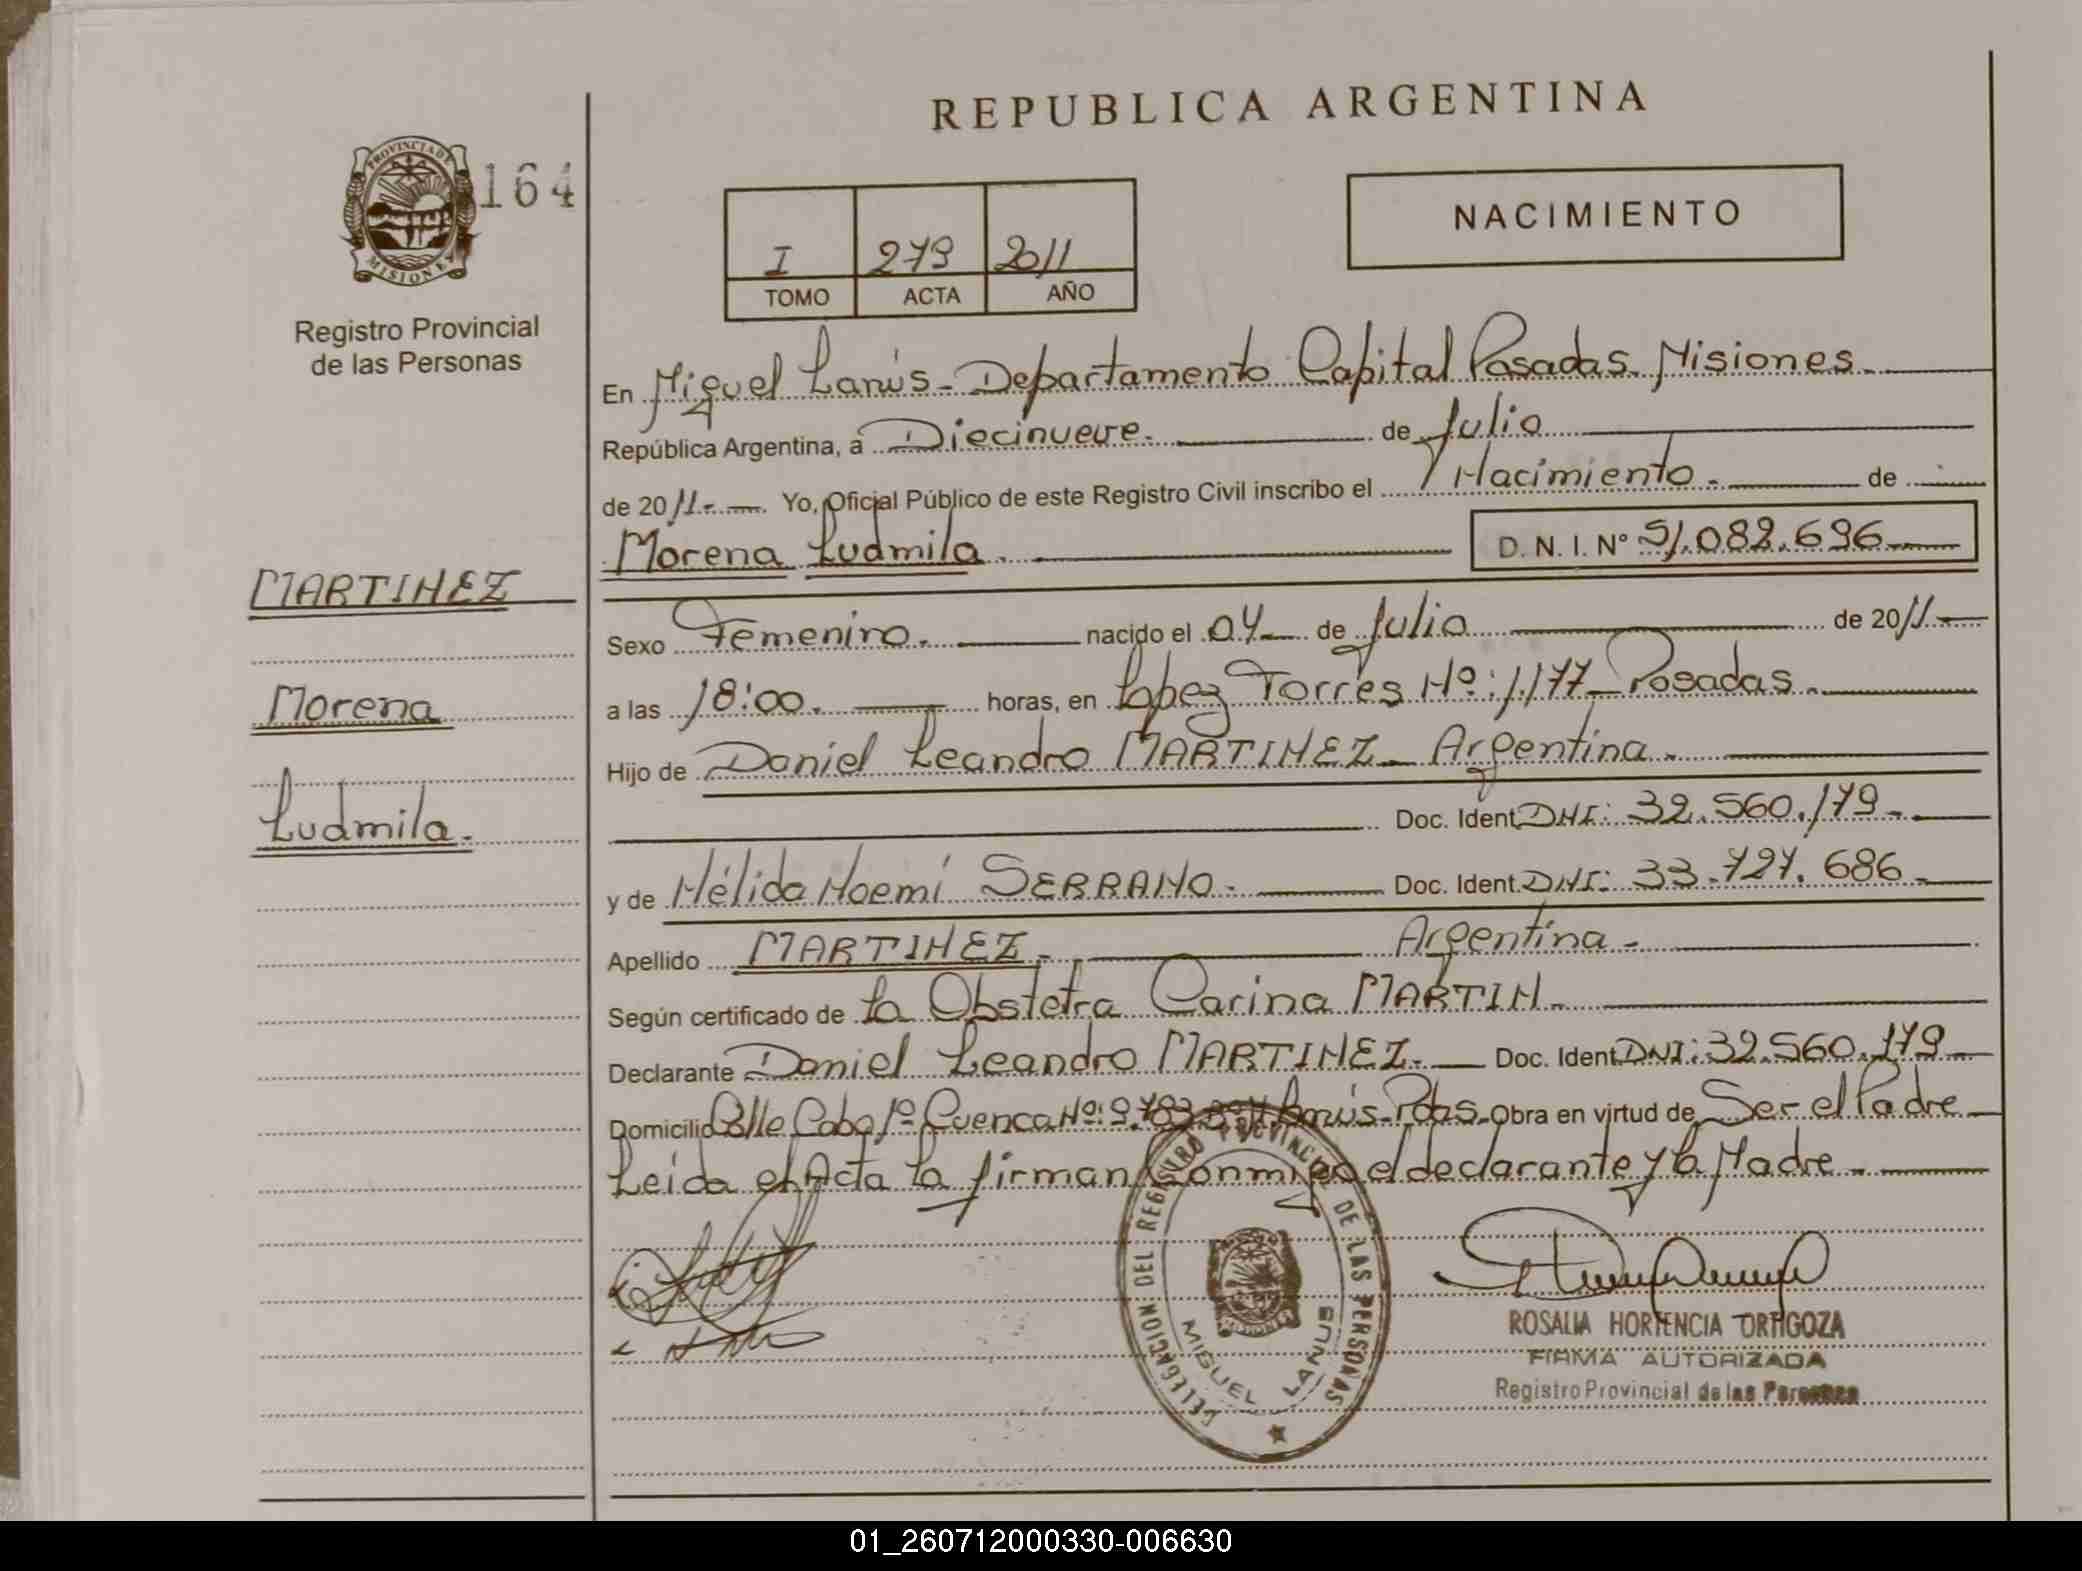 REPUBLICA ARGENTINA
PROVINCIA DE
MISIONES
164
Registro Provincial
de las Personas
NACIMIENTO
I 279 2011
TOMO ACTA AÑO
En Miguel Lanús - Departamento Capital Posadas Misiones
República Argentina, a Diecinueve. de Julio
de 2011. Yo, Oficial Público de este Registro Civil inscribo el Nacimiento. de
Morena Ludmila. D. N. I. Nº 51.082.696
MARTINEZ
Morena
Ludmila.
Sexo Femenino. nacido el 04 de Julio de 2011.
a las 18:00. horas, en Lopez Torres Nº: 1.177 Posadas.
Hijo de Daniel Leandro MARTINEZ - Argentina.
Doc. Ident. DNI: 32.560.179.
y de Nélida Noemí SERRANO. Doc. Ident. DNI: 33.727.686.
Apellido MARTINEZ. Argentina.
Según certificado de La Obstetra Carina MARTIN.
Declarante Daniel Leandro MARTINEZ. Doc. Ident. DNI: 32.560.179
Domicilio Calle Cabo 1º Cuenca Nº: Lanús - Pdas. Obra en virtud de Ser el Padre
Leída el Acta la firman conmigo el declarante y la Madre.
DELEGACION DEL REGISTRO PROVINCIAL DE LAS PERSONAS
MISIONES
MIGUEL LANUS
ROSALIA HORTENCIA ORTIGOZA
FIRMA AUTORIZADA
Registro Provincial de las Personas
01_260712000330-006630